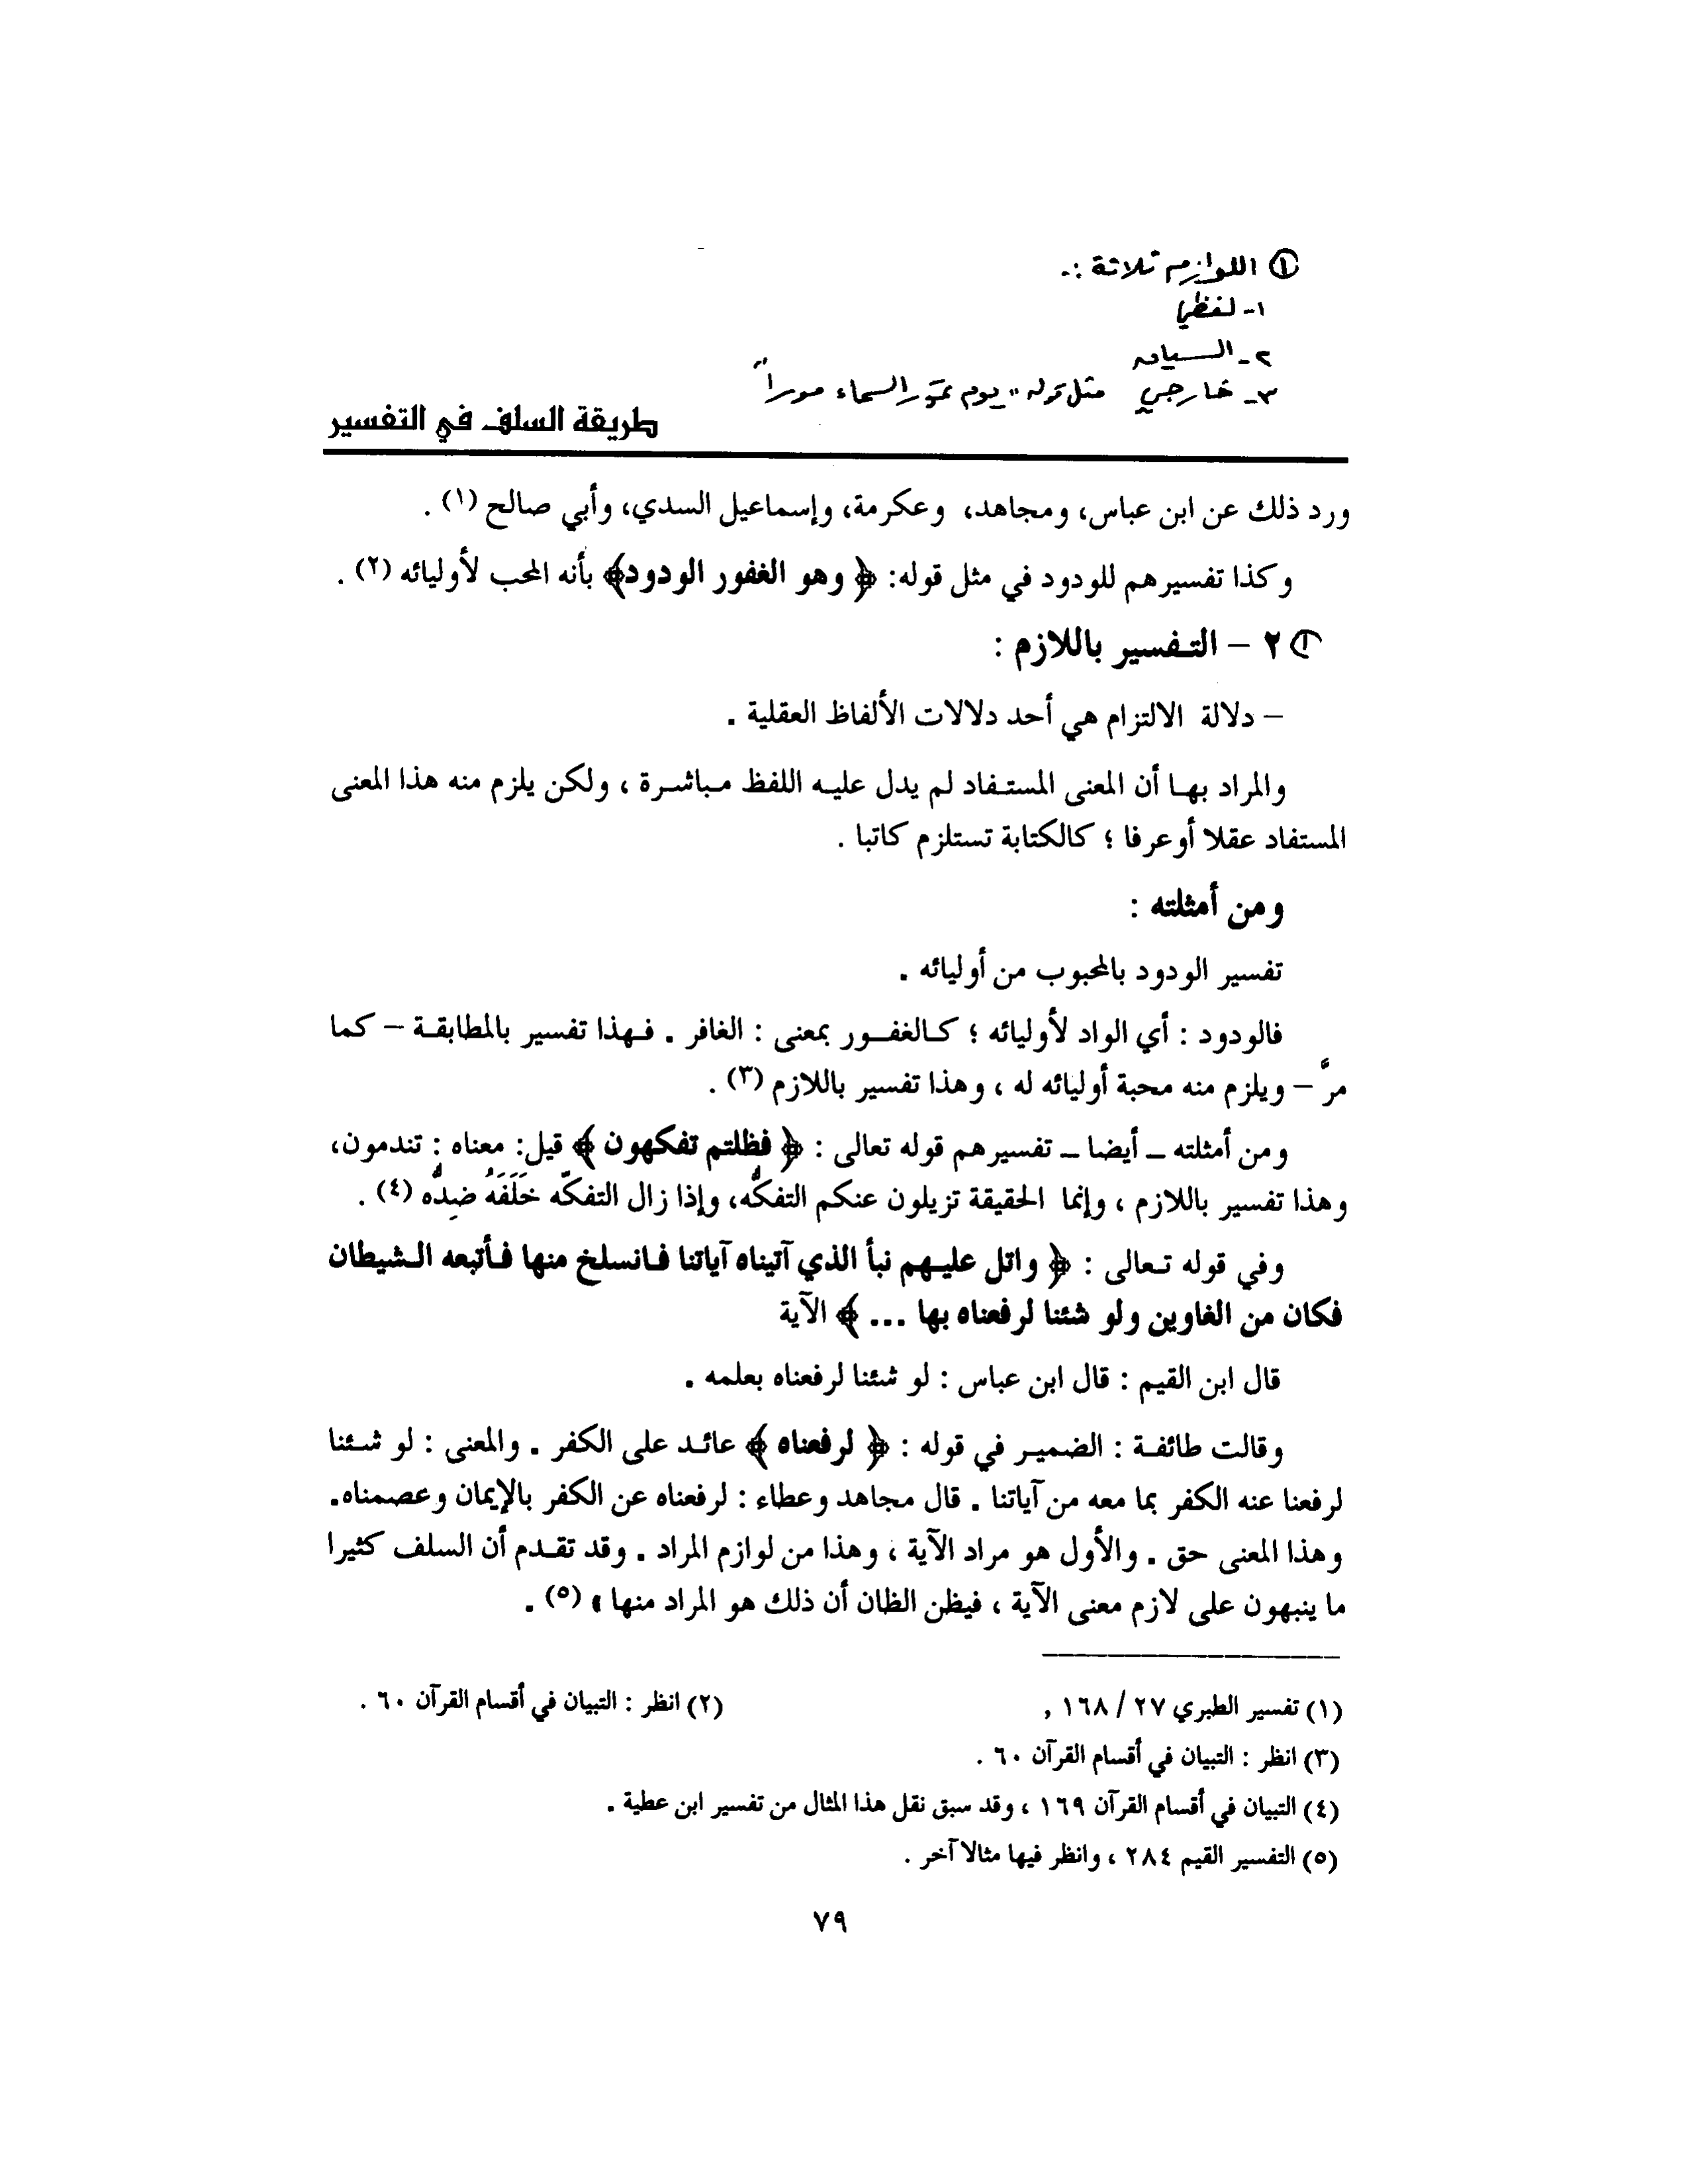 ① اللوازم ثلاثة :-
١- لفظي
٢- السياق
٣- خارجي مثل قوله " يوم تمور السماء مورا "
طريقة السلف في التفسير
ورد ذلك عن ابن عباس، ومجاهد، وعكرمة، وإسماعيل السدي، وأبي صالح (١) .
وكذا تفسيرهم للودود في مثل قوله: ﴿ وهو الغفور الودود﴾ بأنه المحب لأوليائه (٢) .
① ٢ – التفسير باللازم :
– دلالة الالتزام هي أحد دلالات الألفاظ العقلية .
والمراد بها أن المعنى المستفاد لم يدل عليه اللفظ مباشرة ، ولكن يلزم منه هذا المعنى
المستفاد عقلا أوعرفا ؛ كالكتابة تستلزم كاتبا .
ومن أمثلته :
تفسير الودود بالمحبوب من أوليائه .
فالودود : أي الواد لأوليائه ؛ كالغفور بمعنى : الغافر . فهذا تفسير بالمطابقة – كما
مرَّ – ويلزم منه محبة أوليائه له ، وهذا تفسير باللازم (٣) .
ومن أمثلته – أيضا – تفسيرهم قوله تعالى : ﴿ فظلتم تفكهون ﴾ قيل: معناه : تندمون،
وهذا تفسير باللازم ، وإنما الحقيقة تزيلون عنكم التفكُّه، وإذا زال التفكّه خَلَفَهُ ضِدُّه (٤) .
وفي قوله تعالى : ﴿ واتل عليهم نبأ الذي آتيناه آياتنا فانسلخ منها فأتبعه الشيطان
فكان من الغاوين ولو شئنا لرفعناه بها ... ﴾ الآية
قال ابن القيم : قال ابن عباس : لو شئنا لرفعناه بعلمه .
وقالت طائفة : الضمير في قوله : ﴿ لرفعناه ﴾ عائد على الكفر . والمعنى : لو شئنا
لرفعنا عنه الكفر بما معه من آياتنا . قال مجاهد وعطاء : لرفعناه عن الكفر بالإيمان وعصمناه.
وهذا المعنى حق . والأول هو مراد الآية ، وهذا من لوازم المراد . وقد تقدم أن السلف كثيرا
ما ينبهون على لازم معنى الآية ، فيظن الظان أن ذلك هو المراد منها » (٥) .
(١) تفسير الطبري ٢٧ / ١٦٨ , (٢) انظر : التبيان في أقسام القرآن ٦٠ .
(٣) انظر : التبيان في أقسام القرآن ٦٠ .
(٤) التبيان في أقسام القرآن ١٦٩ ، وقد سبق نقل هذا المثال من تفسير ابن عطية .
(٥) التفسير القيم ٢٨٤ ، وانظر فيها مثالا آخر .
٧٩